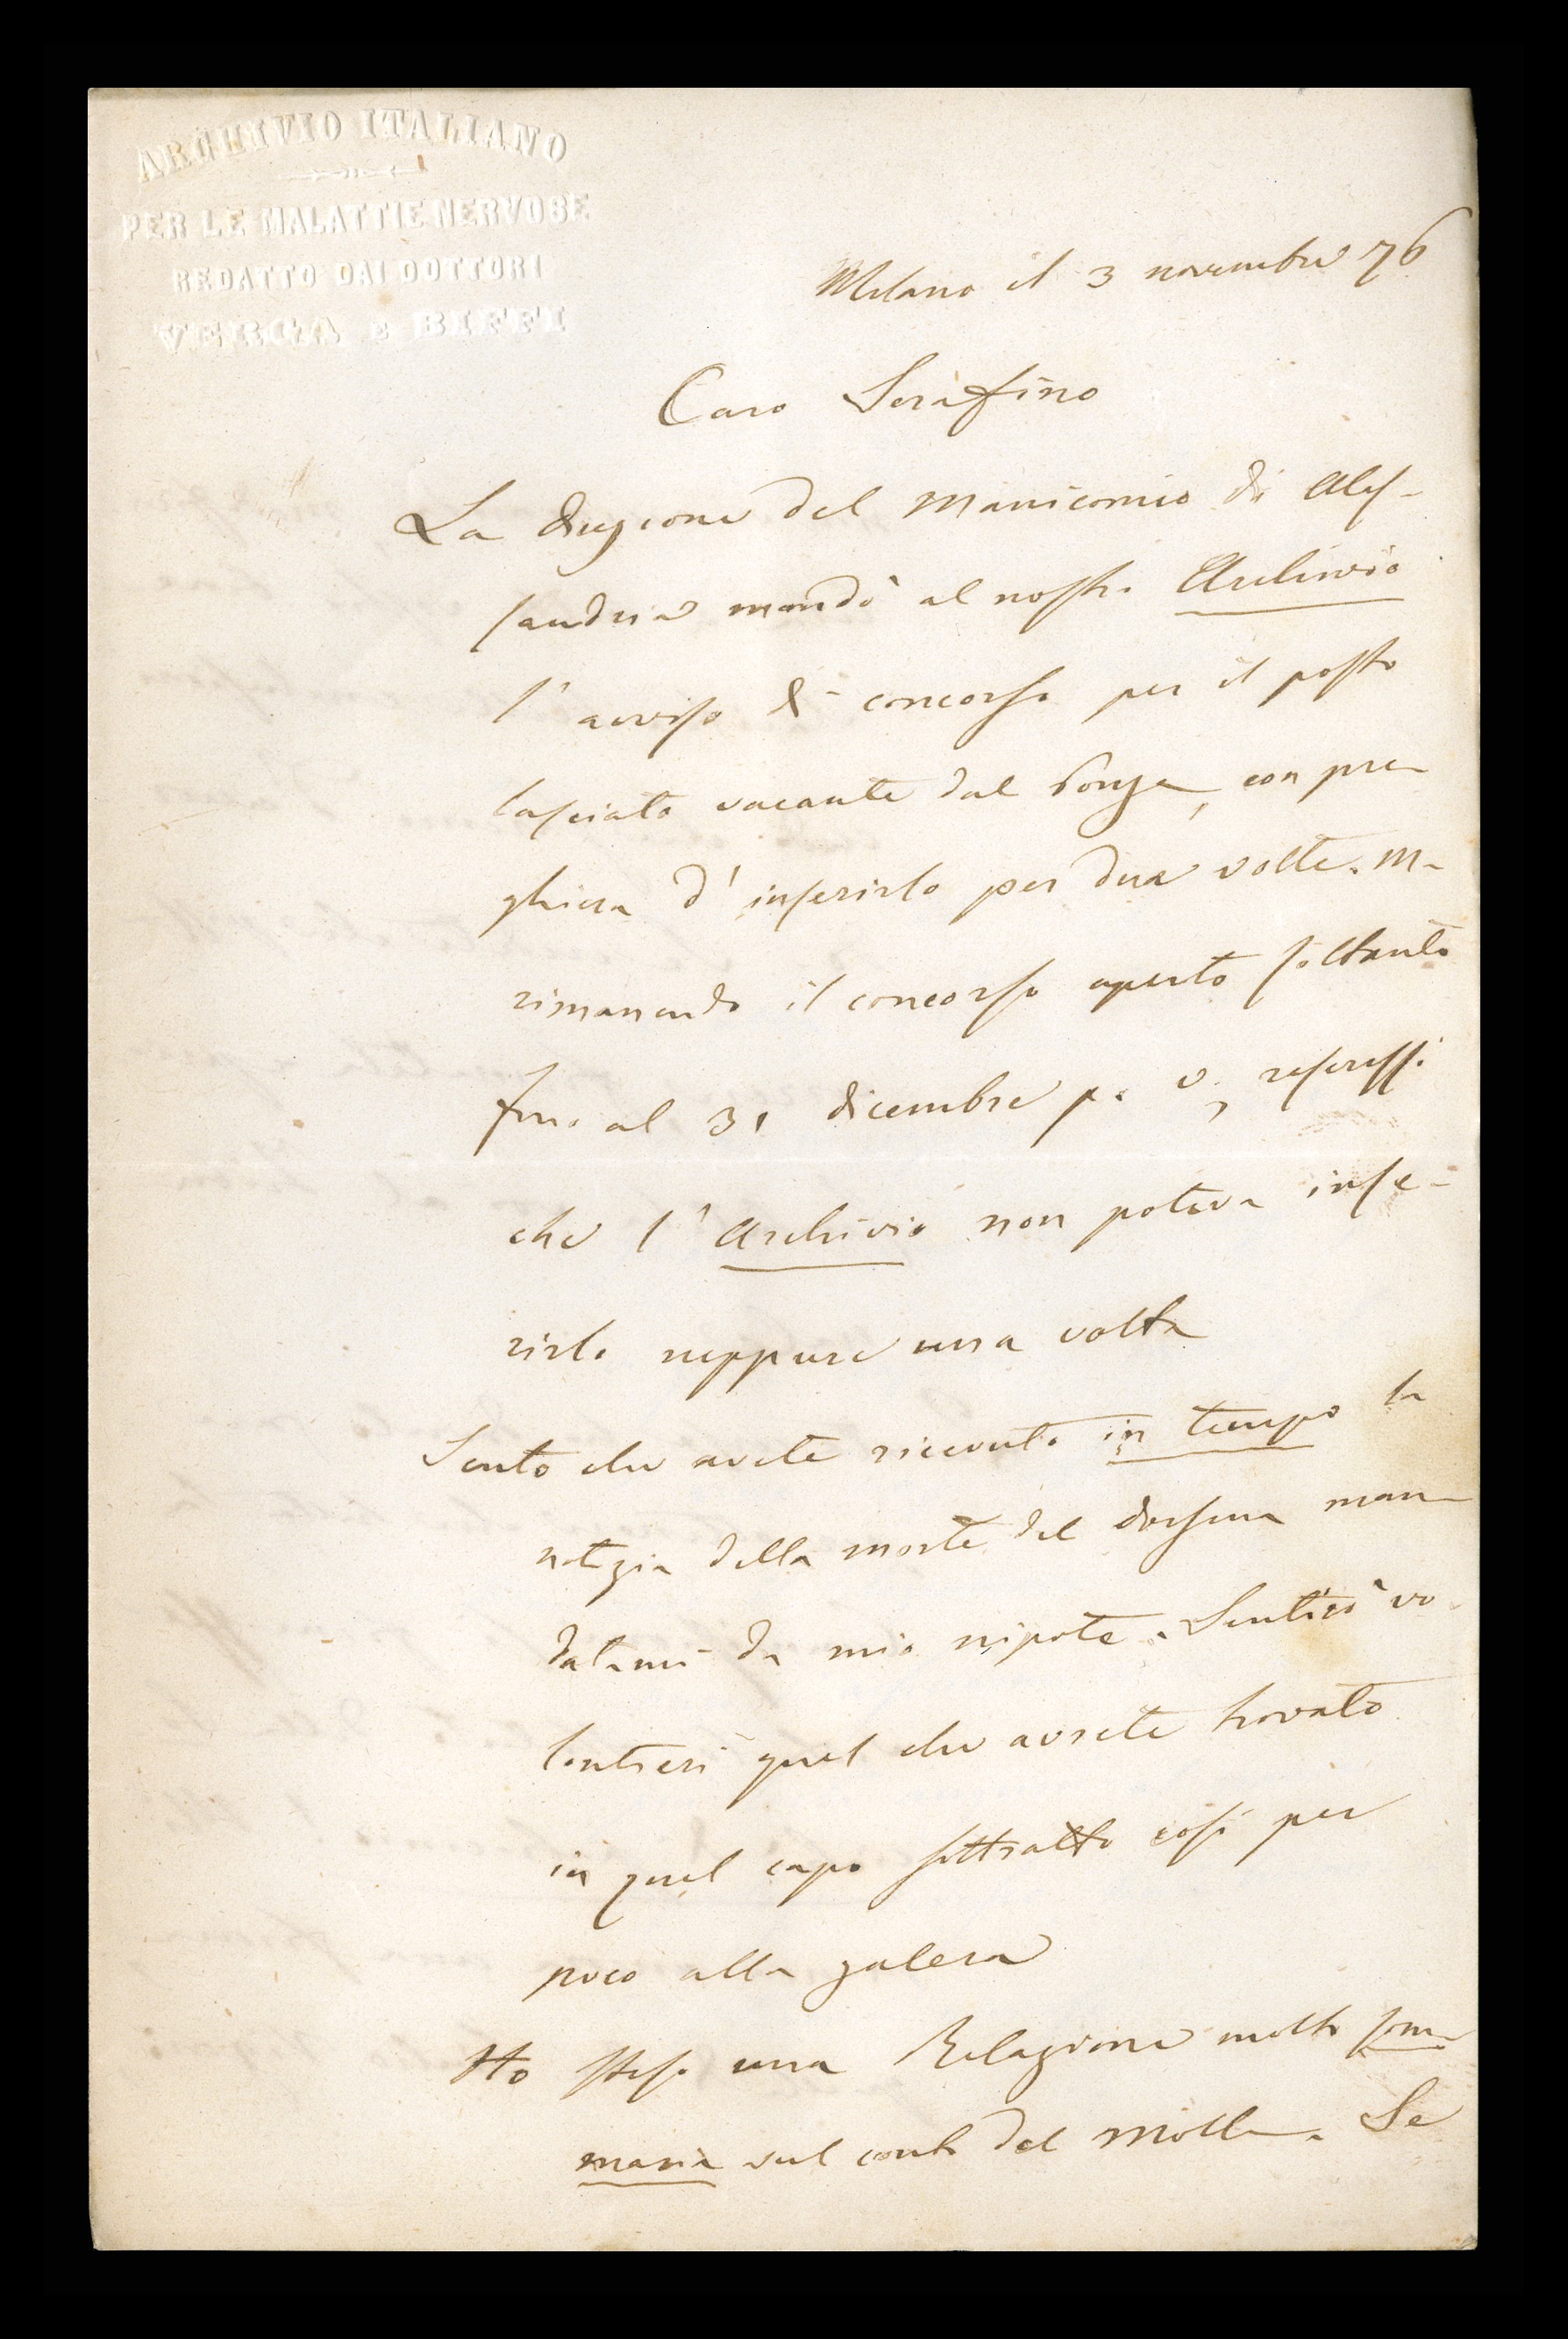 ARCHIVIO ITALIANO
PER LE MALATTIE NERVOSE
REDATTO DAI DOTTORI
VERGA E BIFFI
Milano il 3 novembre 76
Caro Serafino
La direzione del Manicomio di Ales-
sandria mandò al nostro Archivio
l'avviso di concorso per il posto
lasciato vacante dal Ponza, con pre
ghiera d'inserirlo per due volte. Ma
rimanendo il concorso aperto soltanto
fino al 31 dicembre p. v., risposi
che l'Archivio non poteva inse-
rirlo neppure una volta
Sento che avete ricevuto in tempo la
notizia della morte del man
datami da mio nipote. Sentirò vo
lontieri quel che avrete trovato
in quel capo sottratto così per
poco alla galera
Ho steso una Relazione molto som
maria sul conto del Molla. Se